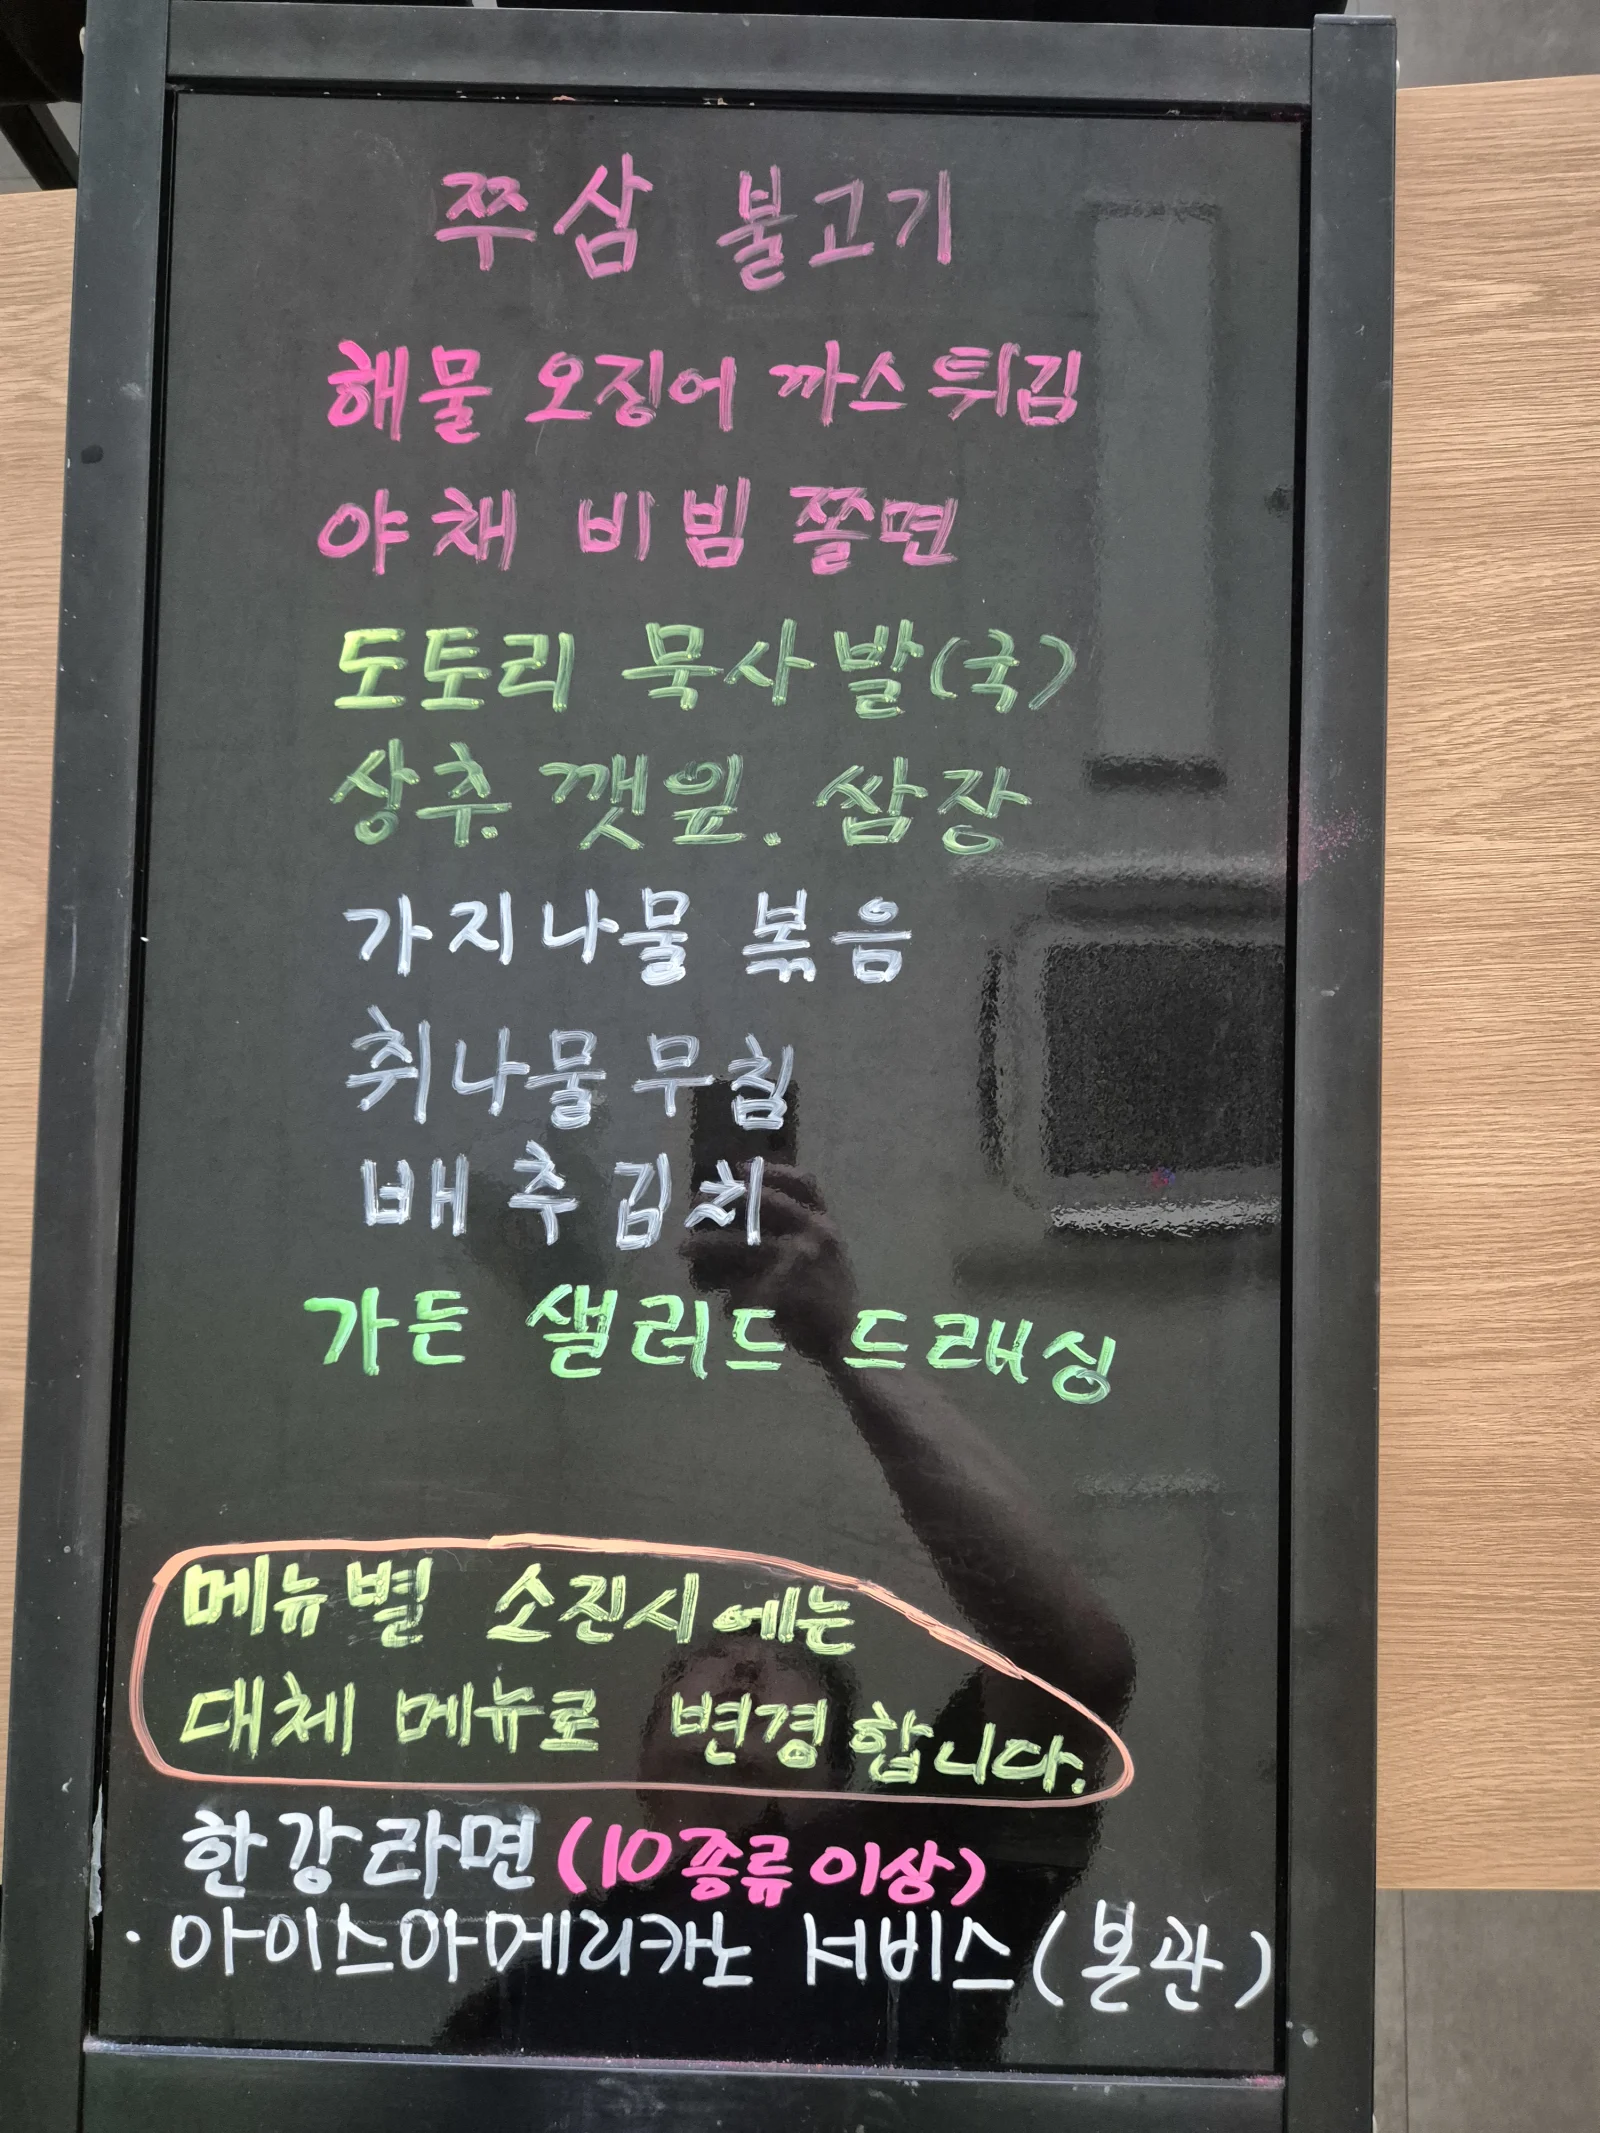 쭈삼 불고기
해물 오징어 까스 튀김
야채 비빔 쫄면
도토리 묵사발(국)
상추 깻잎. 쌈장
가지나물 볶음
취나물무침
배추김치
가든 샐러드 드래싱
메뉴별 소진시에는
대체 메뉴로 변경합니다.
한강라면(10종류이상)
· 아이스아메리카노 서비스(본관)